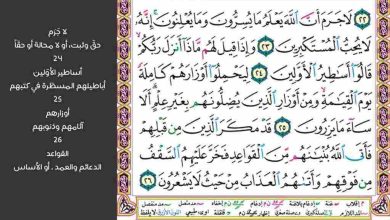 لا جَرم
حقّ وثبت، أو لا محالة أو حقاً
24
أساطير الأوّلين
أباطيلهم المسطّرة في كتبهم
25
أوزارهم
آثامهم وذنوبهم
26
القواعد
الدعائم والعمد ، أو الأساس
٢٢ لَا جَرَمَ أَنَّ ٱللَّهَ يَعْلَمُ مَا يُسِرُّونَ وَمَا يُعْلِنُونَ إِنَّهُۥ
لَا يُحِبُّ ٱلْمُسْتَكْبِرِينَ ٢٣ وَإِذَا قِيلَ لَهُم مَّاذَآ أَنزَلَ رَبُّكُمْ
قَالُوٓا۟ أَسَٰطِيرُ ٱلْأَوَّلِينَ ٢٤ لِيَحْمِلُوٓا۟ أَوْزَارَهُمْ كَامِلَةً
يَوْمَ ٱلْقِيَٰمَةِ وَمِنْ أَوْزَارِ ٱلَّذِينَ يُضِلُّونَهُم بِغَيْرِ عِلْمٍ أَلَا
سَآءَ مَا يَزِرُونَ ٢٥ قَدْ مَكَرَ ٱلَّذِينَ مِن قَبْلِهِمْ
فَأَتَى ٱللَّهُ بُنْيَٰنَهُم مِّنَ ٱلْقَوَاعِدِ فَخَرَّ عَلَيْهِمُ ٱلسَّقْفُ
مِن فَوْقِهِمْ وَأَتَىٰهُمُ ٱلْعَذَابُ مِنْ حَيْثُ لَا يَشْعُرُونَ ٢٦